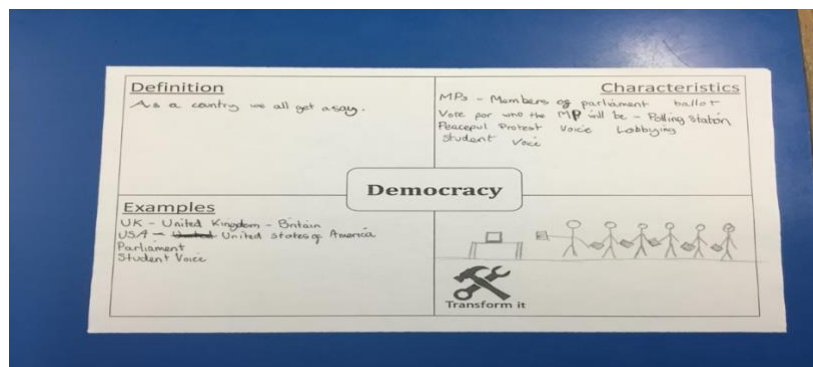 Definition
As a country we all get a say.
Characteristics
MPs - Members of parliament ballot
Vote for who the MP will be - Polling Station
Peaceful Protest Voice Lobbying
Student Voice
Democracy
Examples
UK - United Kingdom - Britain
USA - United United States of America
Parliament
Student Voice
Transform it